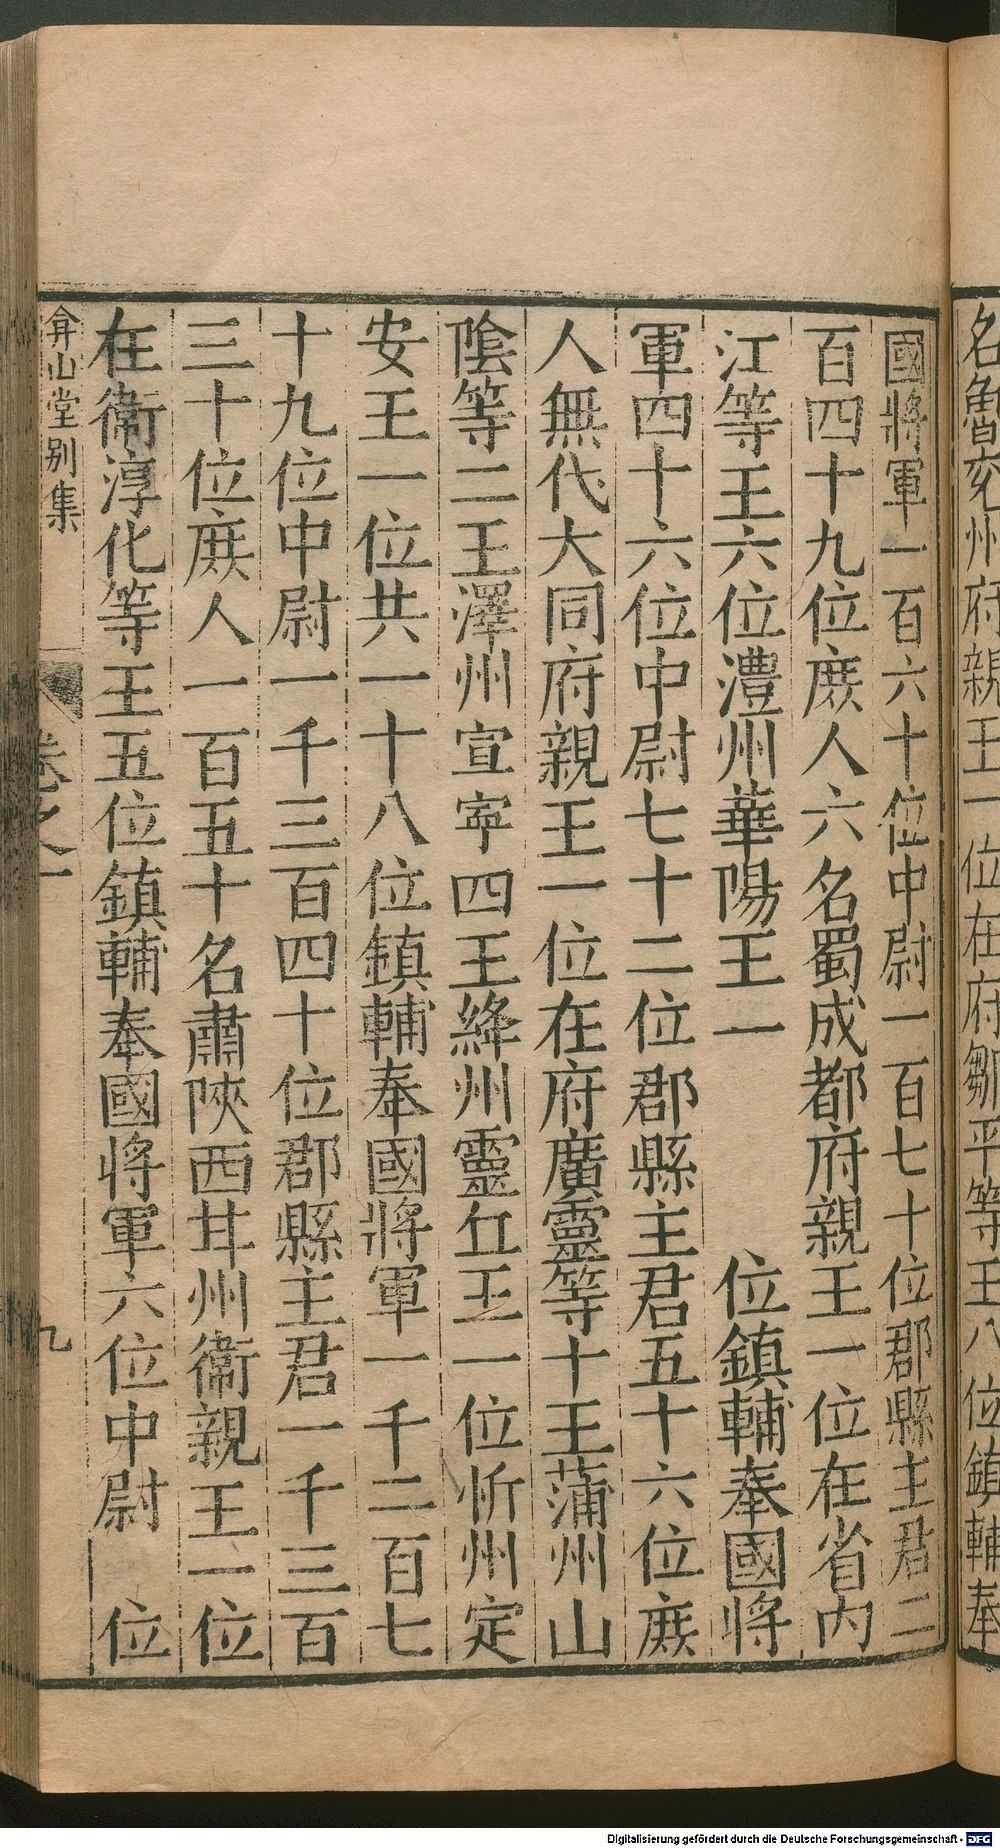 名魯兖州府親王一位在府鄒平等王八位鎮輔奉
國將軍一百六十位中尉一百七十位郡縣主君二
百四十九位庶人六名蜀成都府親王一位在省内
江等王六位澧州華陽王一　　　位鎮輔奉國將
軍四十六位中尉七十二位郡縣主君五十六位庶
人無代大同府親王一位在府廣靈等十王蒲州山
隂等二王澤州宣寕四王絳州靈丘王一位忻州定
安王一位共一十八位鎮輔奉國將軍一千二百七
十九位中尉一千三百四十位郡縣主君一千三百
三十位庶人一百五十名肅陝西甘州衞親王一位
在衞淳化等王五位鎮輔奉國將軍六位中尉　位
弇山堂别集
卷之一
九
Digitalisierung gefördert durch die Deutsche Forschungsgemeinschaft - DFG